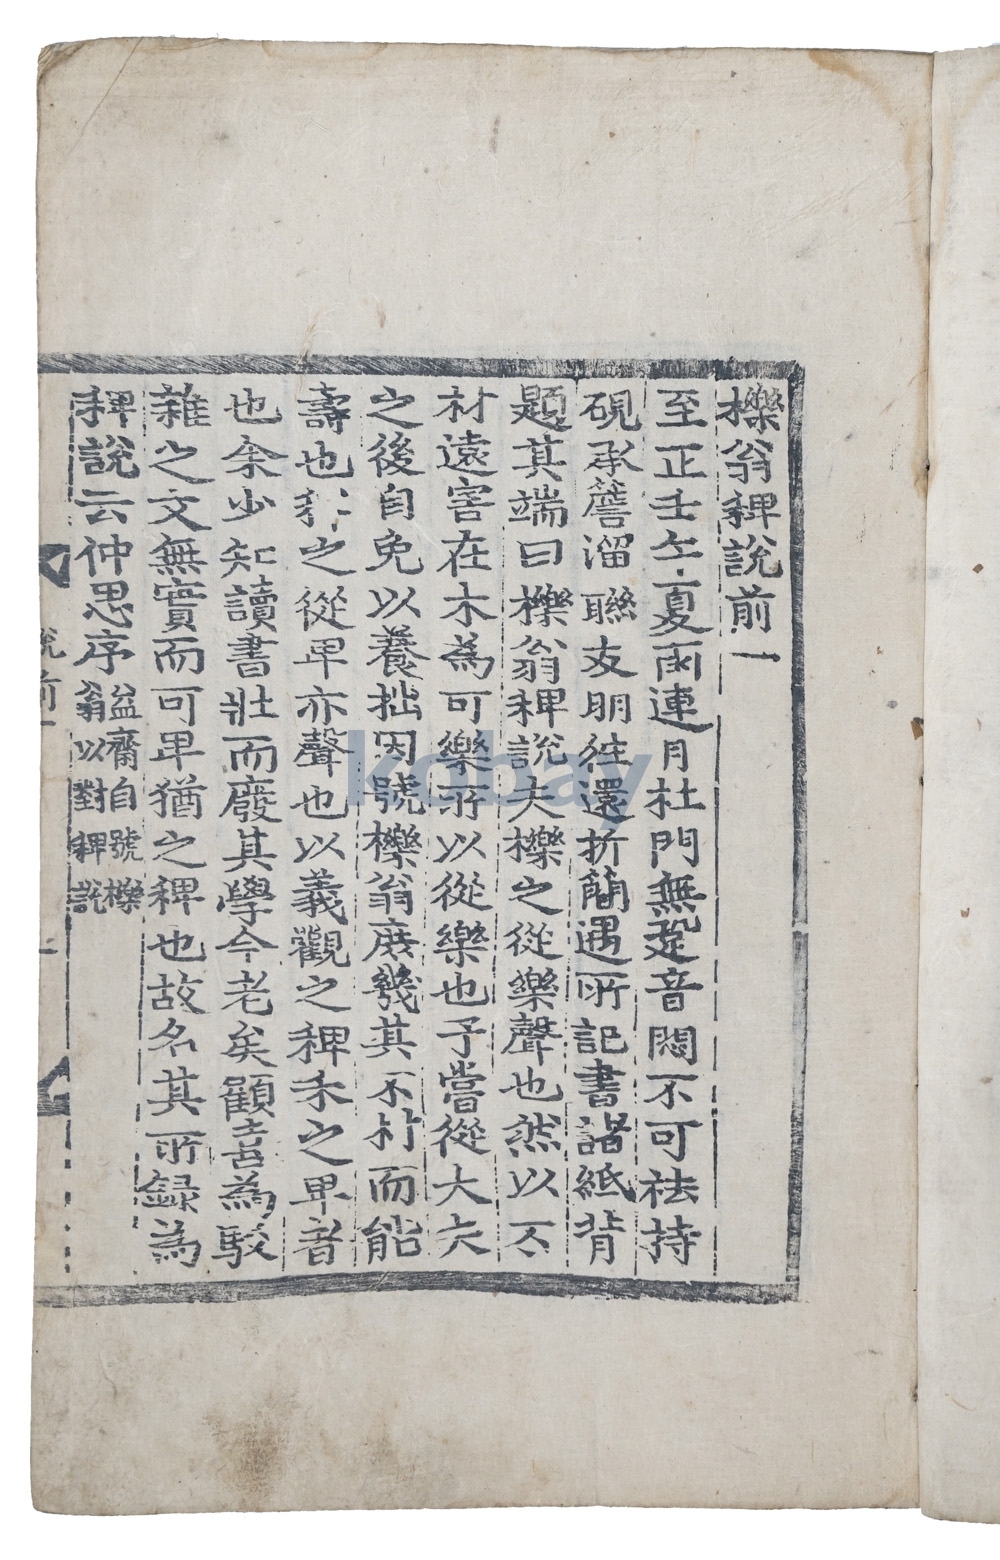 櫟翁稗說前一
至正壬午夏雨連月杜門無跫音悶不可袪持
硯承簷溜聯友朋往還折簡遇所記書諸紙背
題其端曰櫟翁稗說夫櫟之從樂聲也然以不
材遠害在木為可樂所以從樂也予嘗從大夫
之後自免以養拙因號櫟翁庶幾其不材而能
壽也稗之從卑亦聲也以義觀之稗禾之卑者
也余少知讀書壯而廢其學今老矣顧喜為駁
雜之文無實而可卑猶之稗也故名其所録為
稗說云仲思序 益齋自號櫟
翁以對稗說
說前一
kobay